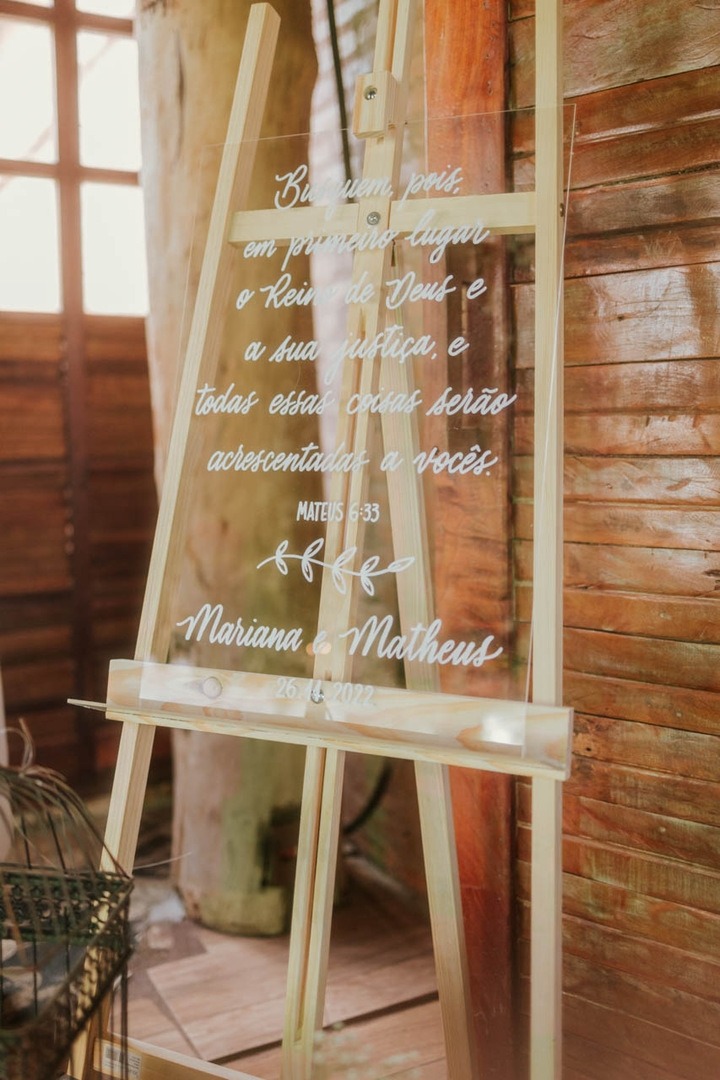 Busquem, pois,
em primeiro lugar
o Reino de Deus e
a sua justiça, e
todas essas coisas serão
acrescentadas a vocês.
MATEUS 6:33
Mariana e Matheus
26. .2022